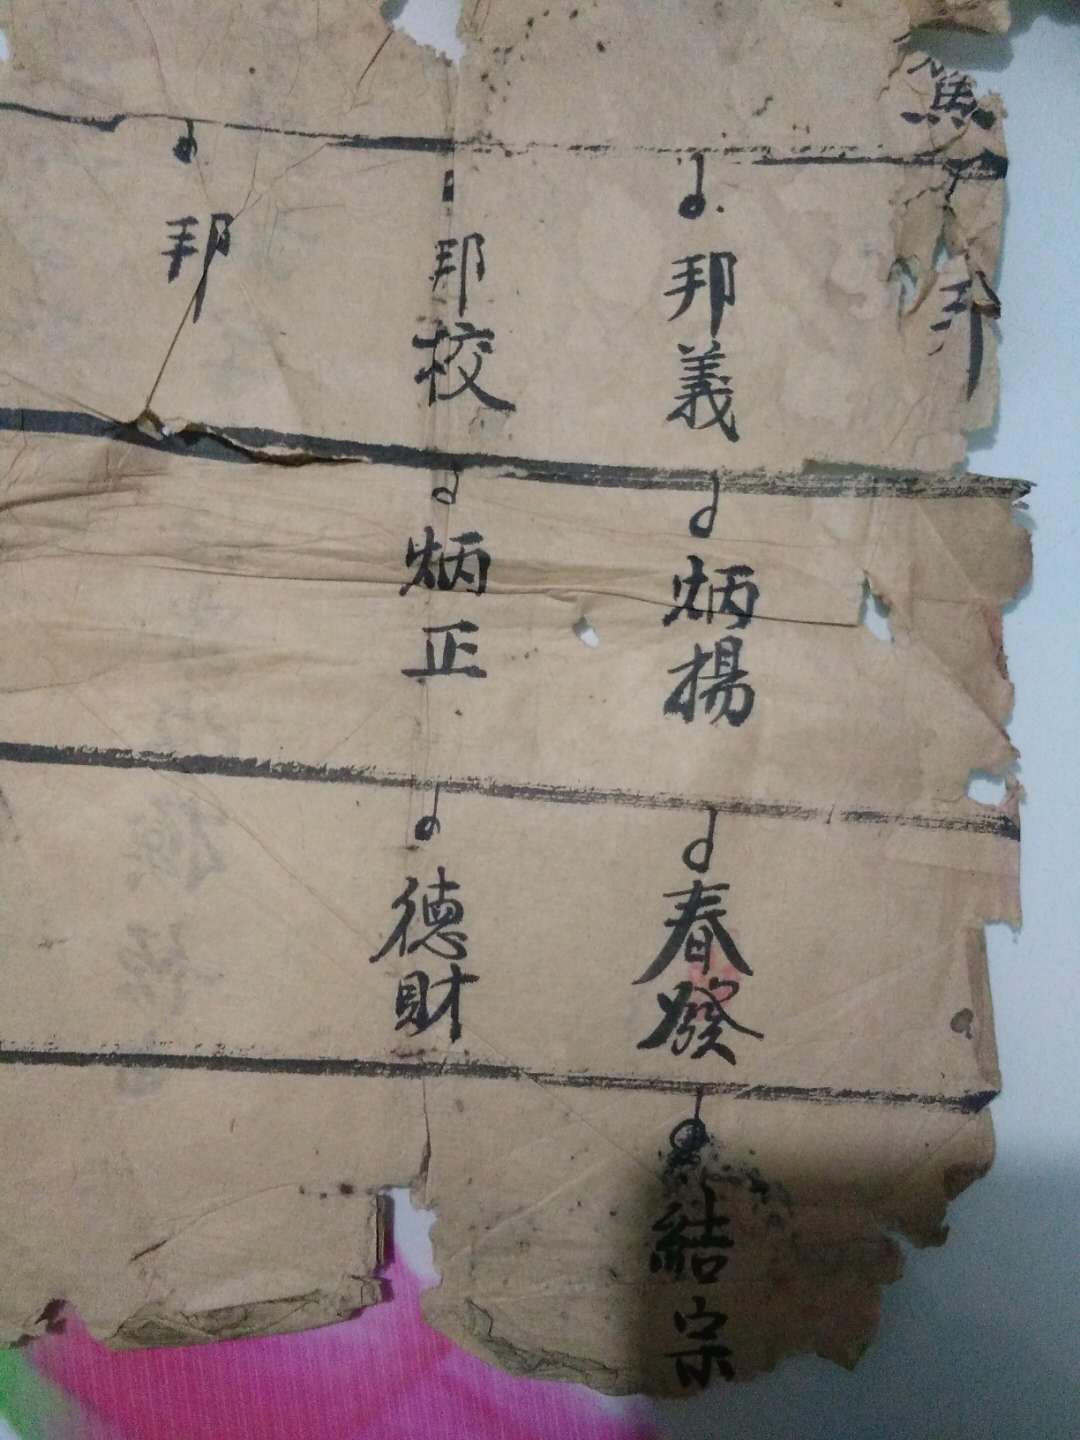 邦
邦義
炳揚
春發
結宗
邦校
炳正
德財
邦